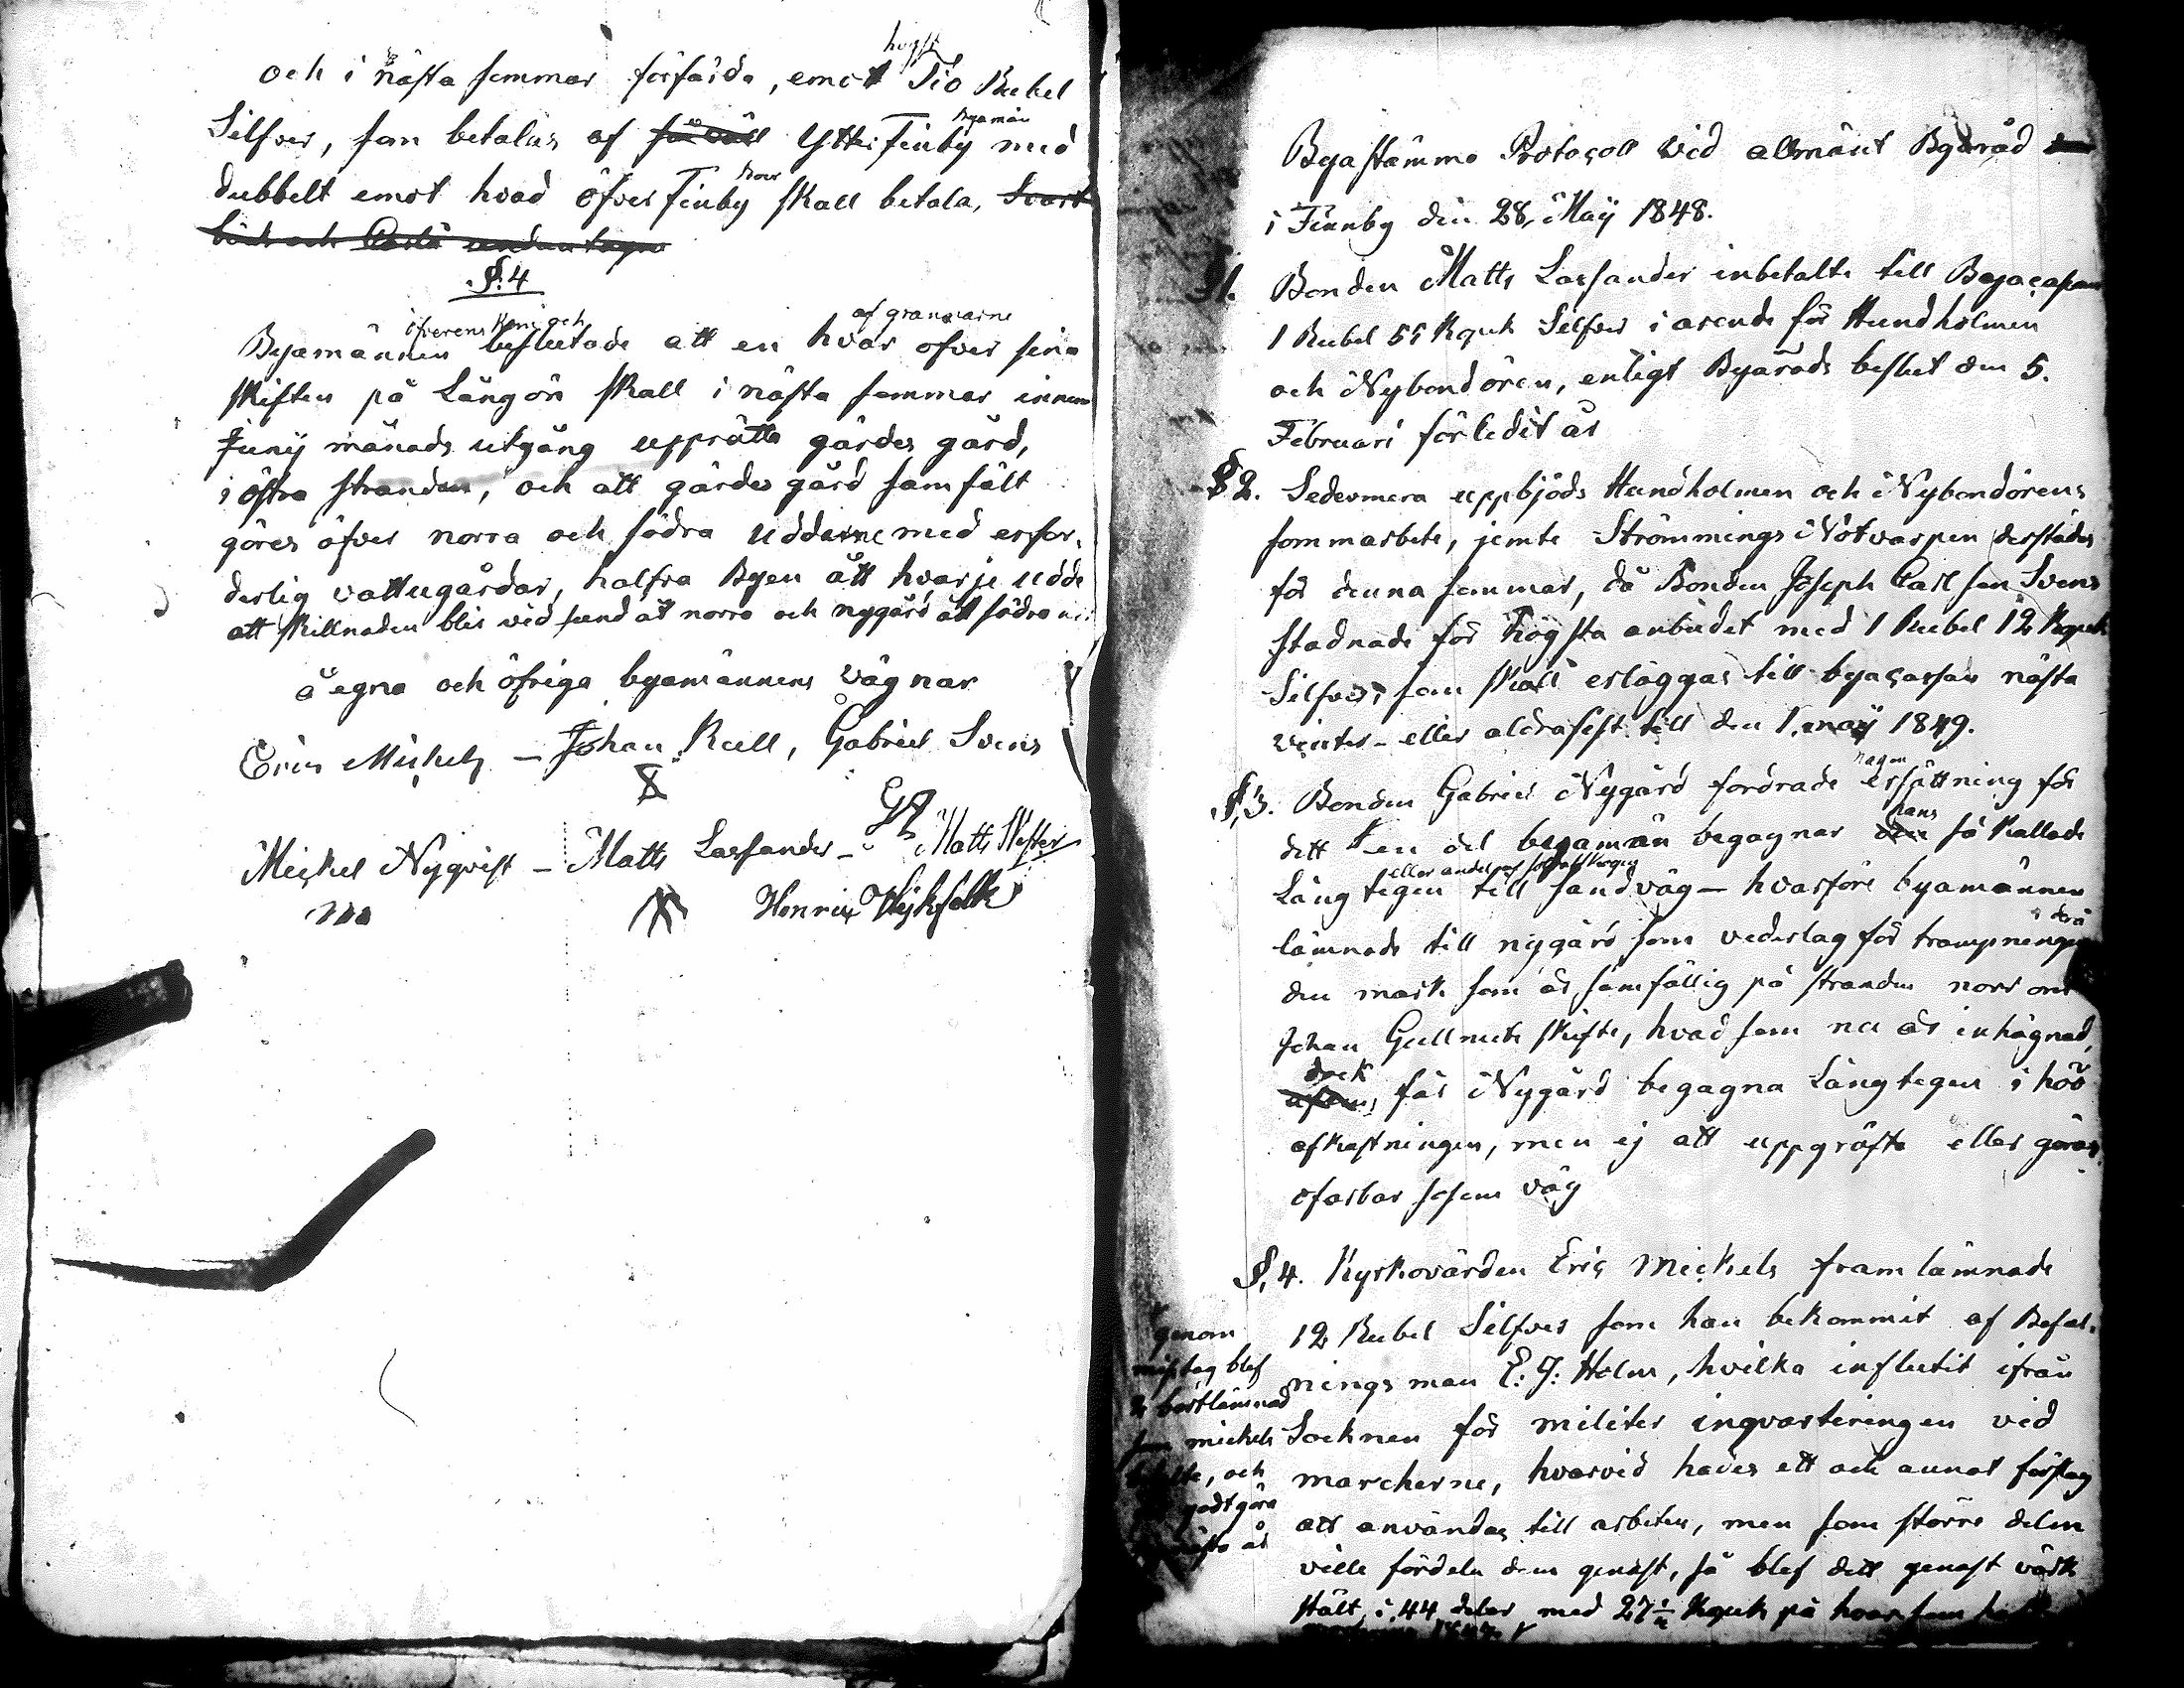 och i nästa sommar förfärda, emot högst Tio Rubel
Silfver, som betalas af Ytter Finby Byamän med
dubbelt emot hvad öfver Finby Boar skall betala, Svart
bäck och Carlä undantagne
§. 4
Byamännen öfverens kom och beslutade att en hvar af grannarne öfver sina
skiften på Långön skall i nästa sommar innom
Junij månads utgång upprätta gärdes gård,
i östra stranden, och att gärdes gård samfält
göres öfver norra och södra uddarne med erfor-
derlig vattugårdar, halfva Byen ått hvarje udde
att skillnaden blir vid sund åt norra och nygård ått södra
å egna och öfriga byamännens vägnar
Eric Mickels – Johan Rull, Gabriel Svens
Mickel Nyqvist – Matts Lassander – Matts Wester
Henric Wejkfolk
Byastämmo Protocoll vid allmänt Byaråd
i Finnby den 28, Maÿ 1848.
§1. Bonden Matts Lassander inbetalte till Byacassan
1 Rubel 55 Kopek Silfver i arende för Hundholmen
och Nybondören, enligt Byaråds beslut den 5.
Februari förledit år
§2. Sedermera uppbjöds Hundholmen och Nybondörens
sommarbete, jemte Strömmings Notvarpen derstädes
för denna sommar, då Bonden Joseph Carlsson Svens
stadnade för högsta anbudet med 1 Rubel 12 Kopek
Silfver, som skall erläggas till byacassan nästa
vinter – eller aldrasist till den 1, maÿ 1849.
§,3. Bonden Gabriel Nygård fordrade någon ersättning för
dett en del byamän begagnar hans så kallade
Långtegen eller andelen till sandväg – hvarföre byamännen
lämnade till nygård som vederlag för trampningen
den mark som är samfällig på stranden norr om
Johan Gullmets skifte, hvad som nu är inhägnad,
dock får Nygård begagna Långtegen i höö
afkastningen, men ej att uppgräfta eller göras
ofarbar sosom väg
§,4. Kyrkovärden Eric Mickels framlämnade
12 Rubel Silfver som han bekommit af Befal-
nings man E: J: Holm, hvilka influtit ifrån
Socknen för militer inqvarteringen vid
marcherne, hvarvid hades ett och annat förslag
att användas till arbeten, men som större delen
ville fördela dem genast, så blef dett genast värk
stält, i 44 delar, med 27 1/4 Kopek på hvar som
genom
misstag blef
2 bortlämnad
som mickels
betalte, och
godtgöra
nästa år